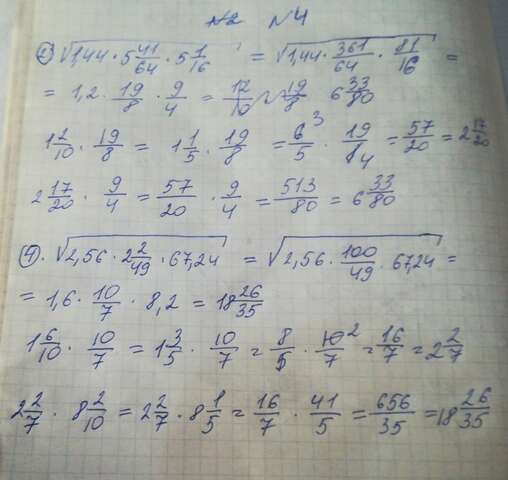 №2 №4
2) √1,44 · 5 41/64 · 5 1/16 = √1,44 · 361/64 · 81/16 =
= 1,2 · 19/8 · 9/4 = 12/10 · 19/8 6 33/80
1 2/10 · 19/8 = 1 1/5 · 19/8 = 6 3/5 · 19/8 4 = 57/20 = 2 17/20
2 17/20 · 9/4 = 57/20 · 9/4 = 513/80 = 6 33/80
4). √2,56 · 2 2/49 · 67,24 = √2,56 · 100/49 · 67,24 =
= 1,6 · 10/7 · 8,2 = 18 26/35
1 6/10 · 10/7 = 1 3/5 · 10/7 = 8/5 · 10 2/7 = 16/7 = 2 2/7
2 2/7 · 8 2/10 = 2 2/7 · 8 1/5 = 16/7 · 41/5 = 656/35 = 18 26/35